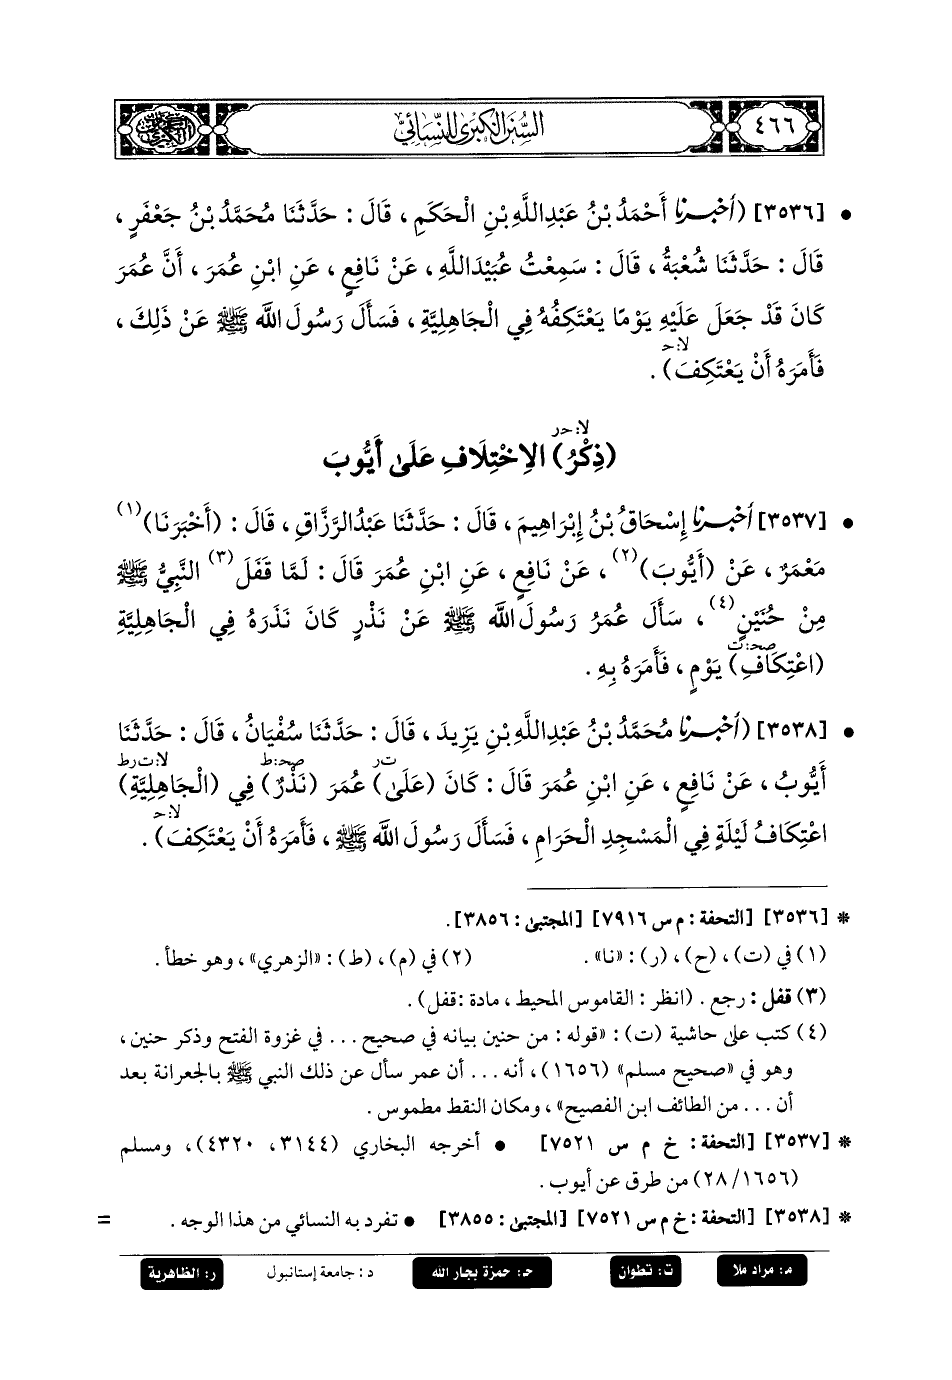 ٤٦٦
السنن الكبرى للنسائي
• [٣٥٣٦] (أخبرنا أَحْمَدُ بْنُ عَبْدِاللَّهِ بْنِ الْحَكَمِ ، قَالَ : حَدَّثَنَا مُحَمَّدُ بْنُ جَعْفَرٍ ،
قَالَ : حَدَّثَنَا شُعْبَةُ ، قَالَ : سَمِعْتُ عُبَيْدَاللَّهِ ، عَنْ نَافِعٍ ، عَنِ ابْنِ عُمَرَ ، أَنَّ عُمَرَ
كَانَ قَدْ جَعَلَ عَلَيْهِ يَوْمًا يَعْتَكِفُهُ فِي الْجَاهِلِيَّةِ ، فَسَأَلَ رَسُولَ اللَّه ﷺ عَنْ ذَلِكَ ،
لا:حـ
فَأَمَرَهُ أَنْ يَعْتَكِفَ) .
لا:حر
(ذِكْرُ) الِاخْتِلَافِ عَلَىٰ أَيُّوبَ
• [٣٥٣٧] أخبرنا إِسْحَاقُ بْنُ إِبْرَاهِيمَ ، قَالَ : حَدَّثَنَا عَبْدُ الرَّزَّاقِ ، قَالَ : (أَخْبَرَنَا)(١)
مَعْمَرٌ ، عَنْ (أَيُّوبَ)(٢) ، عَنْ نَافِعٍ ، عَنِ ابْنِ عُمَرَ قَالَ : لَمَّا قَفَلَ(٣) النَّبِيُّ ﷺ
مِنْ حُنَيْنٍ(٤) ، سَأَلَ عُمَرُ رَسُولَ اللَّه ﷺ عَنْ نَذْرٍ كَانَ نَذَرَهُ فِي الْجَاهِلِيَّةِ
صحـ:ت
(اعْتِكَافِ) يَوْمٍ ، فَأَمَرَهُ بِهِ .
• [٣٥٣٨] (أخبرنا مُحَمَّدُ بْنُ عَبْدِاللَّهِ بْنِ يَزِيدَ ، قَالَ : حَدَّثَنَا سُفْيَانُ ، قَالَ : حَدَّثَنَا
تر صحـ:ط لا:ت ر ط
أَيُّوبُ ، عَنْ نَافِعٍ ، عَنِ ابْنِ عُمَرَ قَالَ : كَانَ (عَلَىٰ) عُمَرَ (نَذْرٌ) فِي (الْجَاهِلِيَّةِ)
لا:حـ
اعْتِكَافُ لَيْلَةٍ فِي الْمَسْجِدِ الْحَرَامِ ، فَسَأَلَ رَسُولَ اللَّه ﷺ ، فَأَمَرَهُ أَنْ يَعْتَكِفَ) .
* [٣٥٣٦] [التحفة : م س ٧٩١٦] [المجتبى : ٣٨٥٦] .
(١) في (ت) ، (ح) ، (ر) : «نا» . (٢) في (م) ، (ط) : «الزهري» ، وهو خطأ .
(٣) قفل : رجع . (انظر : القاموس المحيط ، مادة :قفل) .
(٤) كتب على حاشية (ت) : «قوله : من حنين بيانه في صحيح ... في غزوة الفتح وذكر حنين ،
وهو في «صحيح مسلم» (١٦٥٦) ، أنه ... أن عمر سأل عن ذلك النبي ﷺ بالجعرانة بعد
أن ... من الطائف ابن الفصيح» ، ومكان النقط مطموس .
* [٣٥٣٧] [التحفة : خ م س ٧٥٢١] • أخرجه البخاري (٣١٤٤، ٤٣٢٠) ، ومسلم
(٢٨/١٦٥٦) من طرق عن أيوب .
* [٣٥٣٨] [التحفة : خ م س ٧٥٢١] [المجتبى : ٣٨٥٥] • تفرد به النسائي من هذا الوجه . =
م: مراد ملا ت: تطوان حـ: حمزة بجار الله د: جامعة إستانبول ر: الظاهرية